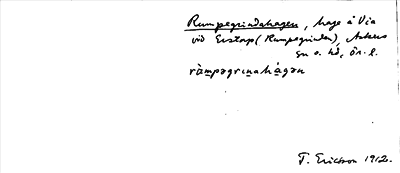 Rumpegrindshagen, hage å Via
vid Ekstorp (Rumpegrinden), Askers
sn o. hd, Ör. l.
ràmpegrinahágen
T. Ericsson 1912.